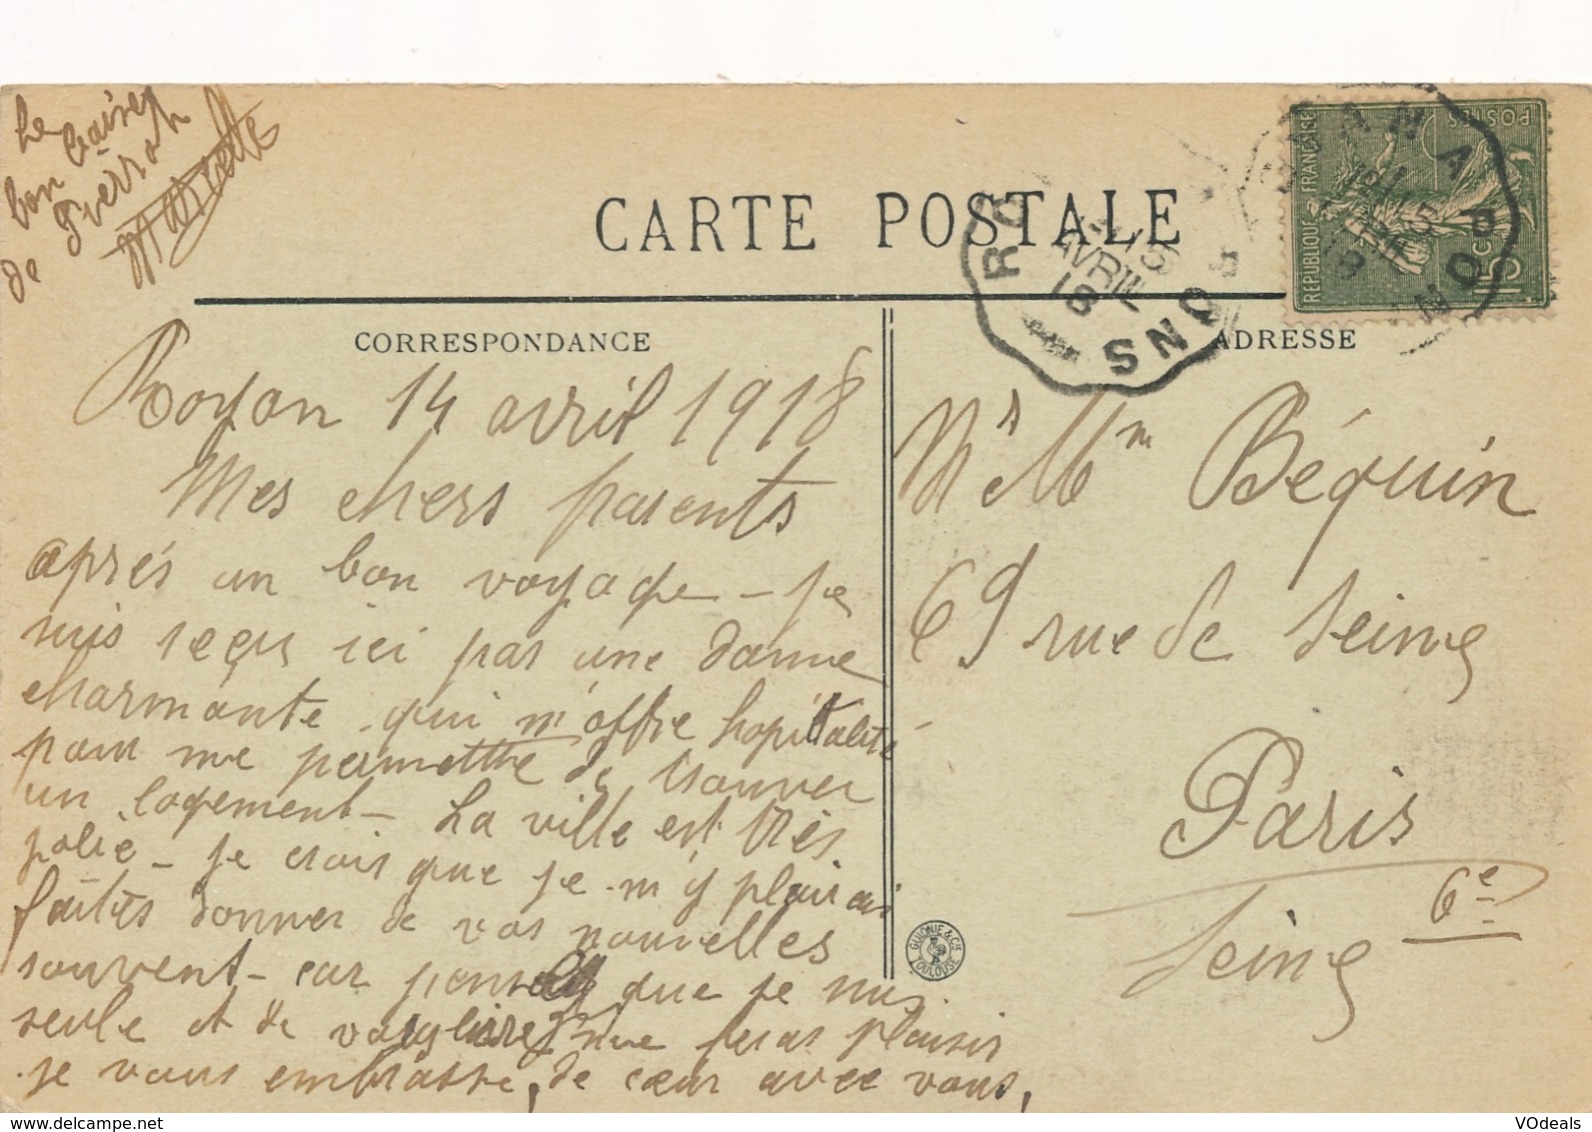 Le
bon baiser
de Pierrot
Mariette
CARTE POSTALE
CORRESPONDANCE
ADRESSE
REPUBLIQUE FRANÇAISE
POSTES
15c
AVRIL
18
Royan 14 avril 1918
Mes chers parents
après un bon voyage – je
suis reçu ici par une dame
charmante qui m'offre hopitalité
pour me permettre de trouver
un logement – La ville est très
jolie – je crois que je m'y plairais
faites donner de vos nouvelles
souvent – car pensez que je suis
seule et de vous lire me feras plaisir
je vous embrasse, de cœur avec vous,
Mr & Mm Béquin
69 rue de Seine
Paris
6e
Seine
GUIONIE & Cie
TOULOUSE
www.delcampe.net
VOdeals